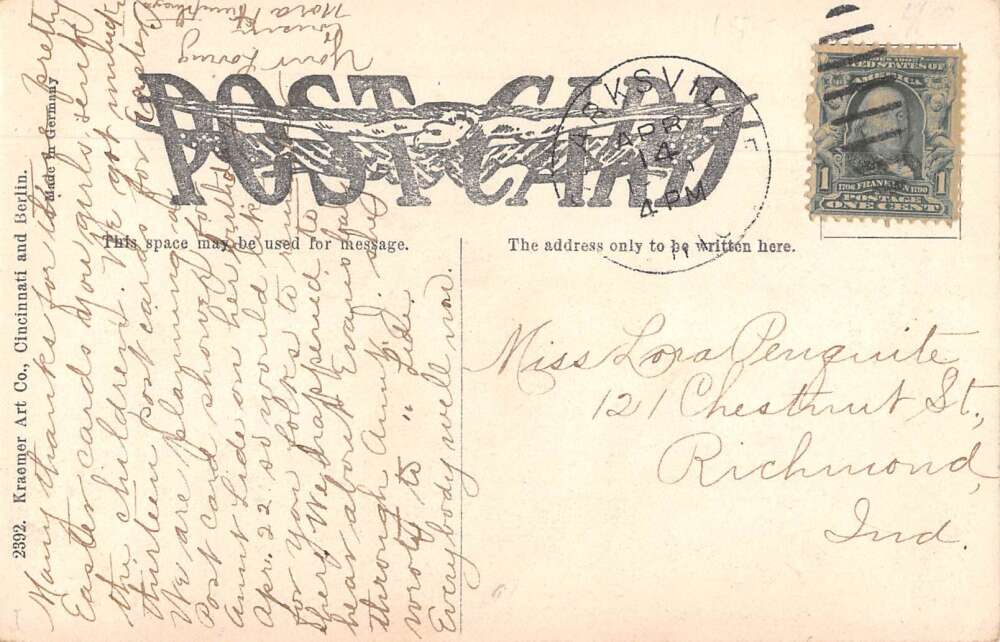 POST CARD
This space may be used for message.
The address only to be written here.
2392. Kraemer Art Co., Cincinnati and Berlin.
Made in Germany
RKSVIL
APR
14
4 PM
UNITED STATES OF
AMERICA
1
1
1706 FRANKLIN 1790
POSTAGE
ONE CENT
Many thanks for the pretty
Easter cards you girls sent
the children. We got
thirteen post cards for Easter.
We are planning a
Post card shower for
Aunt Lide on her birthday
Apr. 22 so would like
for you folks to
her. We happened to
hear about Evaris
through Aunt K. she
wrote to " Lide.
Everybody well now.
Your loving
Cousin
Nora Humphreys
Miss Lora Penquite
121 Chestnut St.,
Richmond,
Ind.